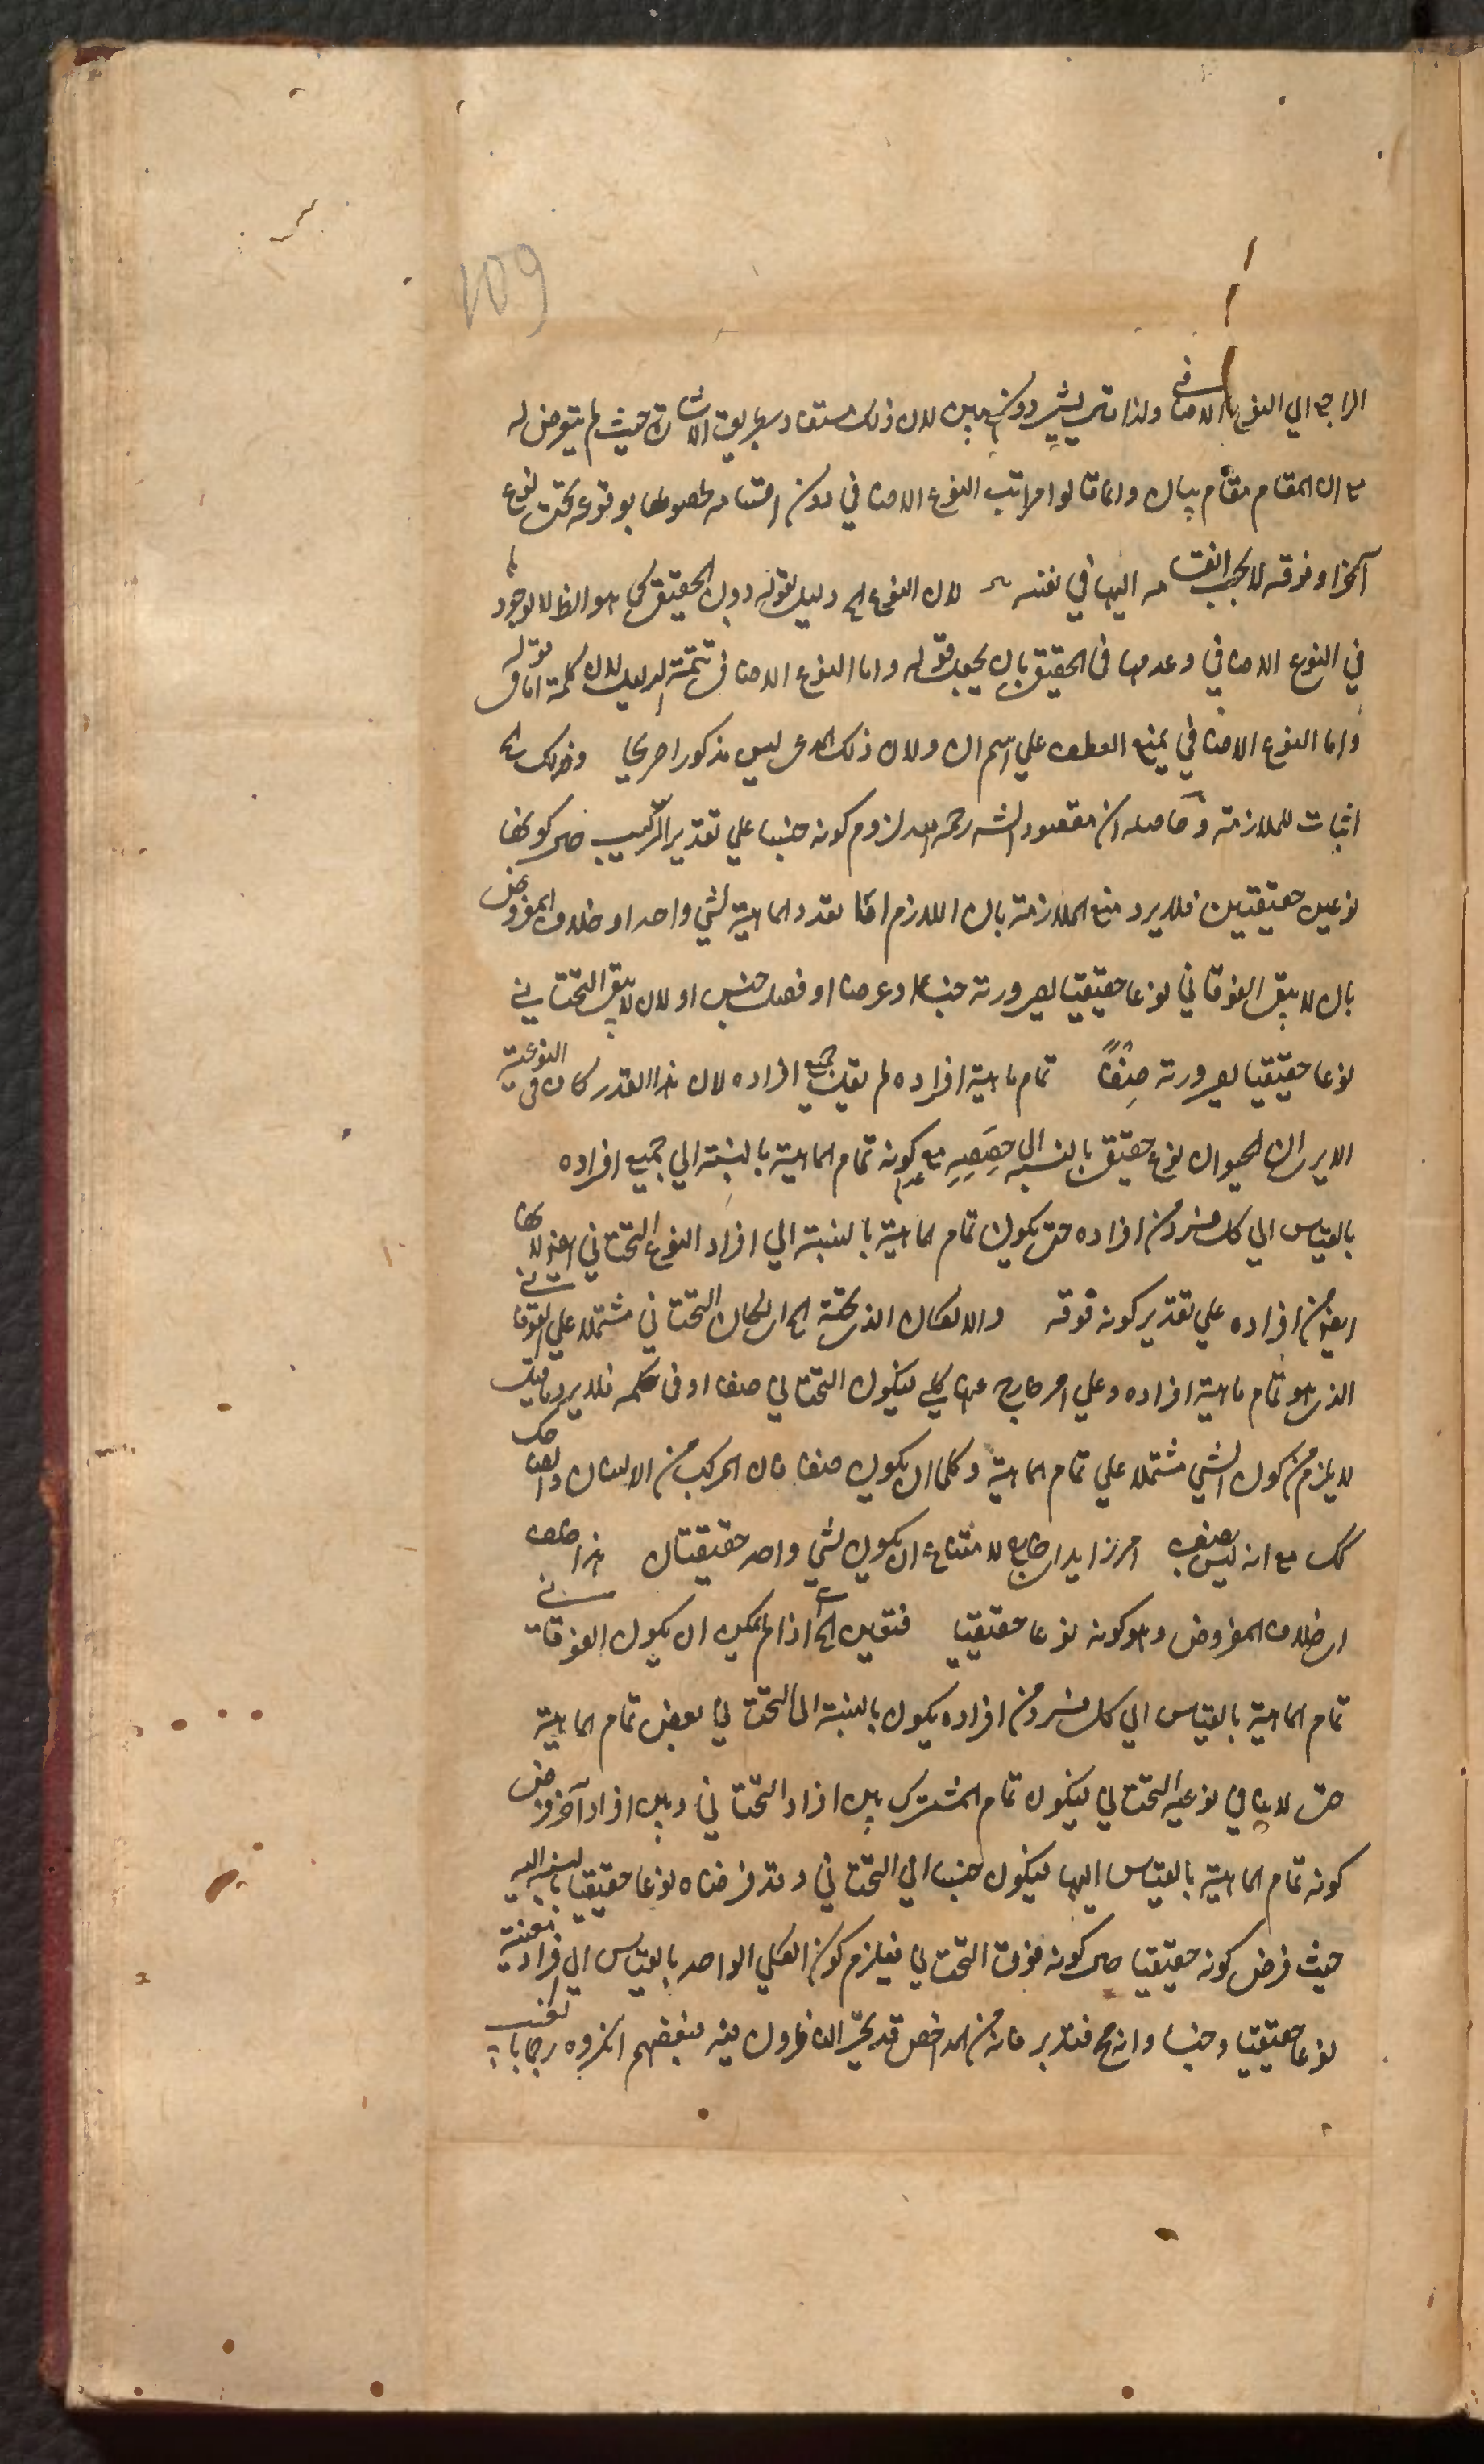 109
الراجع الي النوع الاضافي ولذا قال يشير دون يبين لان ذلك مستفاد بطريق الاشارة حيث لم يتعرض له
مع ان المقام مقام بيان وانما قالوا مراتب النوع الاضافي دون اقسامه لحصولها بوقوعه تحت نوع
آخر او فوقه لا بحسب انقسامه اليها في نفسه لان النوع الخ دليل لقوله دون الحقيقي كما هو الظ لا لوجودها
في النوع الاضافي وعدمها في الحقيقي بان يجعل قوله واما النوع الاضافي تتمة الدليل لان كلمة اما في قوله
واما النوع الاضافي يمنع العطف علي اسم ان ولان ذلك المدعى ليس مذكورا صريحا وذلك الخ
اثبات للملازمة وحاصله ان مقصود الشه رحمه الله لزوم كونه جنسا علي تقدير الترتيب حين كونها
نوعين حقيقيين فلا يرد منع الملازمة بان اللازم اما تعدد الماهية لشي واحد او خلاف المفروض
بان لا يبقى الفوقاني نوعا حقيقيا لصيرورته جنسا او عرضا او فصل جنس او لان لا يبقى التحتاني
نوعا حقيقيا لصيرورته صنفًا تمام ماهية افراده لم يقل جميع افراده لان هذا القدر كاف في النوعية
الا يرى ان الحيوان نوع حقيقي بالنسبة الى حصصه مع عدم كونه تمام الماهية بالنسبة الي جميع افراده
بالقياس الي كل فرد من افراده حتى يكون تمام الماهية بالنسبة الي افراد النوع التحتاني ايضا لانها
ايضا من افراده علي تقدير كونه فوقه والا لكان الذي تحته الخ اى لكان التحتاني مشتملا علي الفوقاني
الذي هو تمام ماهية افراده وعلي امر خارج عنها كلي فيكون التحتاني صنفا او في حكمه فلا يرد ما قيل
لا يلزم من كون الشي مشتملا علي تمام الماهية وكلي ان يكون صنفا فان المركب من الانسان والضاحك
كك مع انه ليس بصنف امر زايد اى خارج لامتناع ان يكون لشي واحد حقيقتان هذا خلف
اى خلاف المفروض وهو كونه نوعا حقيقيا فتعين الخ اى اذا لم يمكن ان يكون الفوقاني
تمام الماهية بالقياس الي كل فرد من افراده يكون بالنسبة الى التحتاني بعض تمام الماهية
حتى لا ينافي نوعيه التحتاني فيكون تمام المشترك بين افراد التحتاني وبين افراد آخر فرض
كونه تمام الماهية بالقياس اليها فيكون جنسا الي التحتاني وقد فرضناه نوعا حقيقيا بالنسبة اليه
حيث فرض كونه حقيقيا حين كونه فوق التحتاني فيلزم كون الكلي الواحد بالقياس الي افراد معينة
نوعا حقيقيا وجنسا وانه مح فتدبر فانه من المداحض قد تحير الناظرون فيه فبعضهم انكروه رجما بالغيب